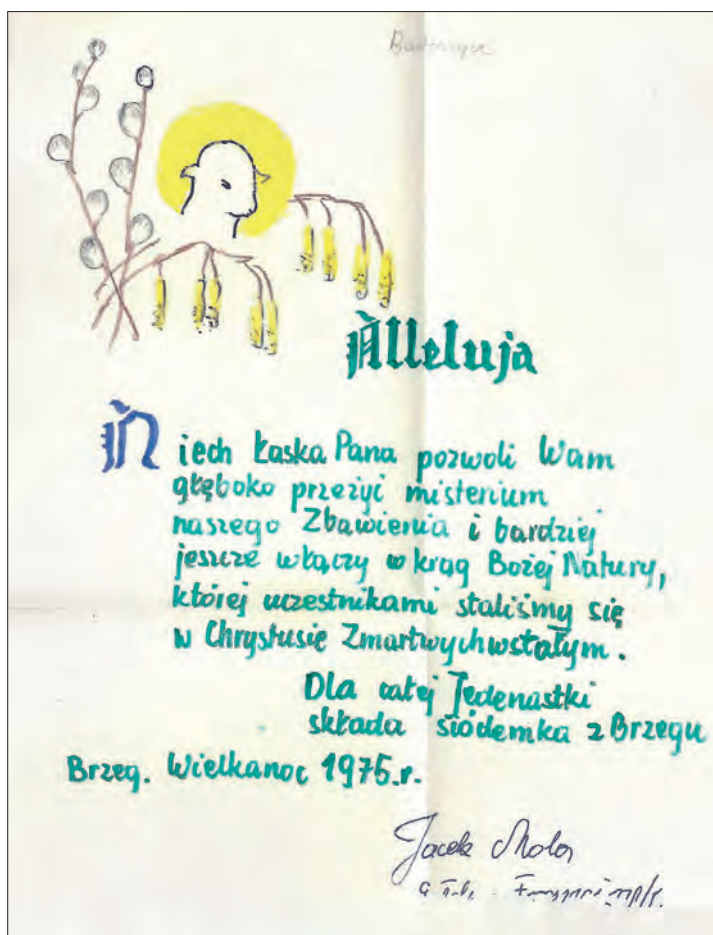 Alleluja
Niech Łaska Pana pozwoli Wam
głęboko przeżyć misterium
naszego Zbawienia i bardziej
jeszcze włączy w krąg Bożej Natury,
której uczestnikami staliśmy się
w Chrystusie Zmartwychwstałym.
Dla całej Jedenastki
składa siódemka z Brzegu
Brzeg. Wielkanoc 1975.r.
Jacek